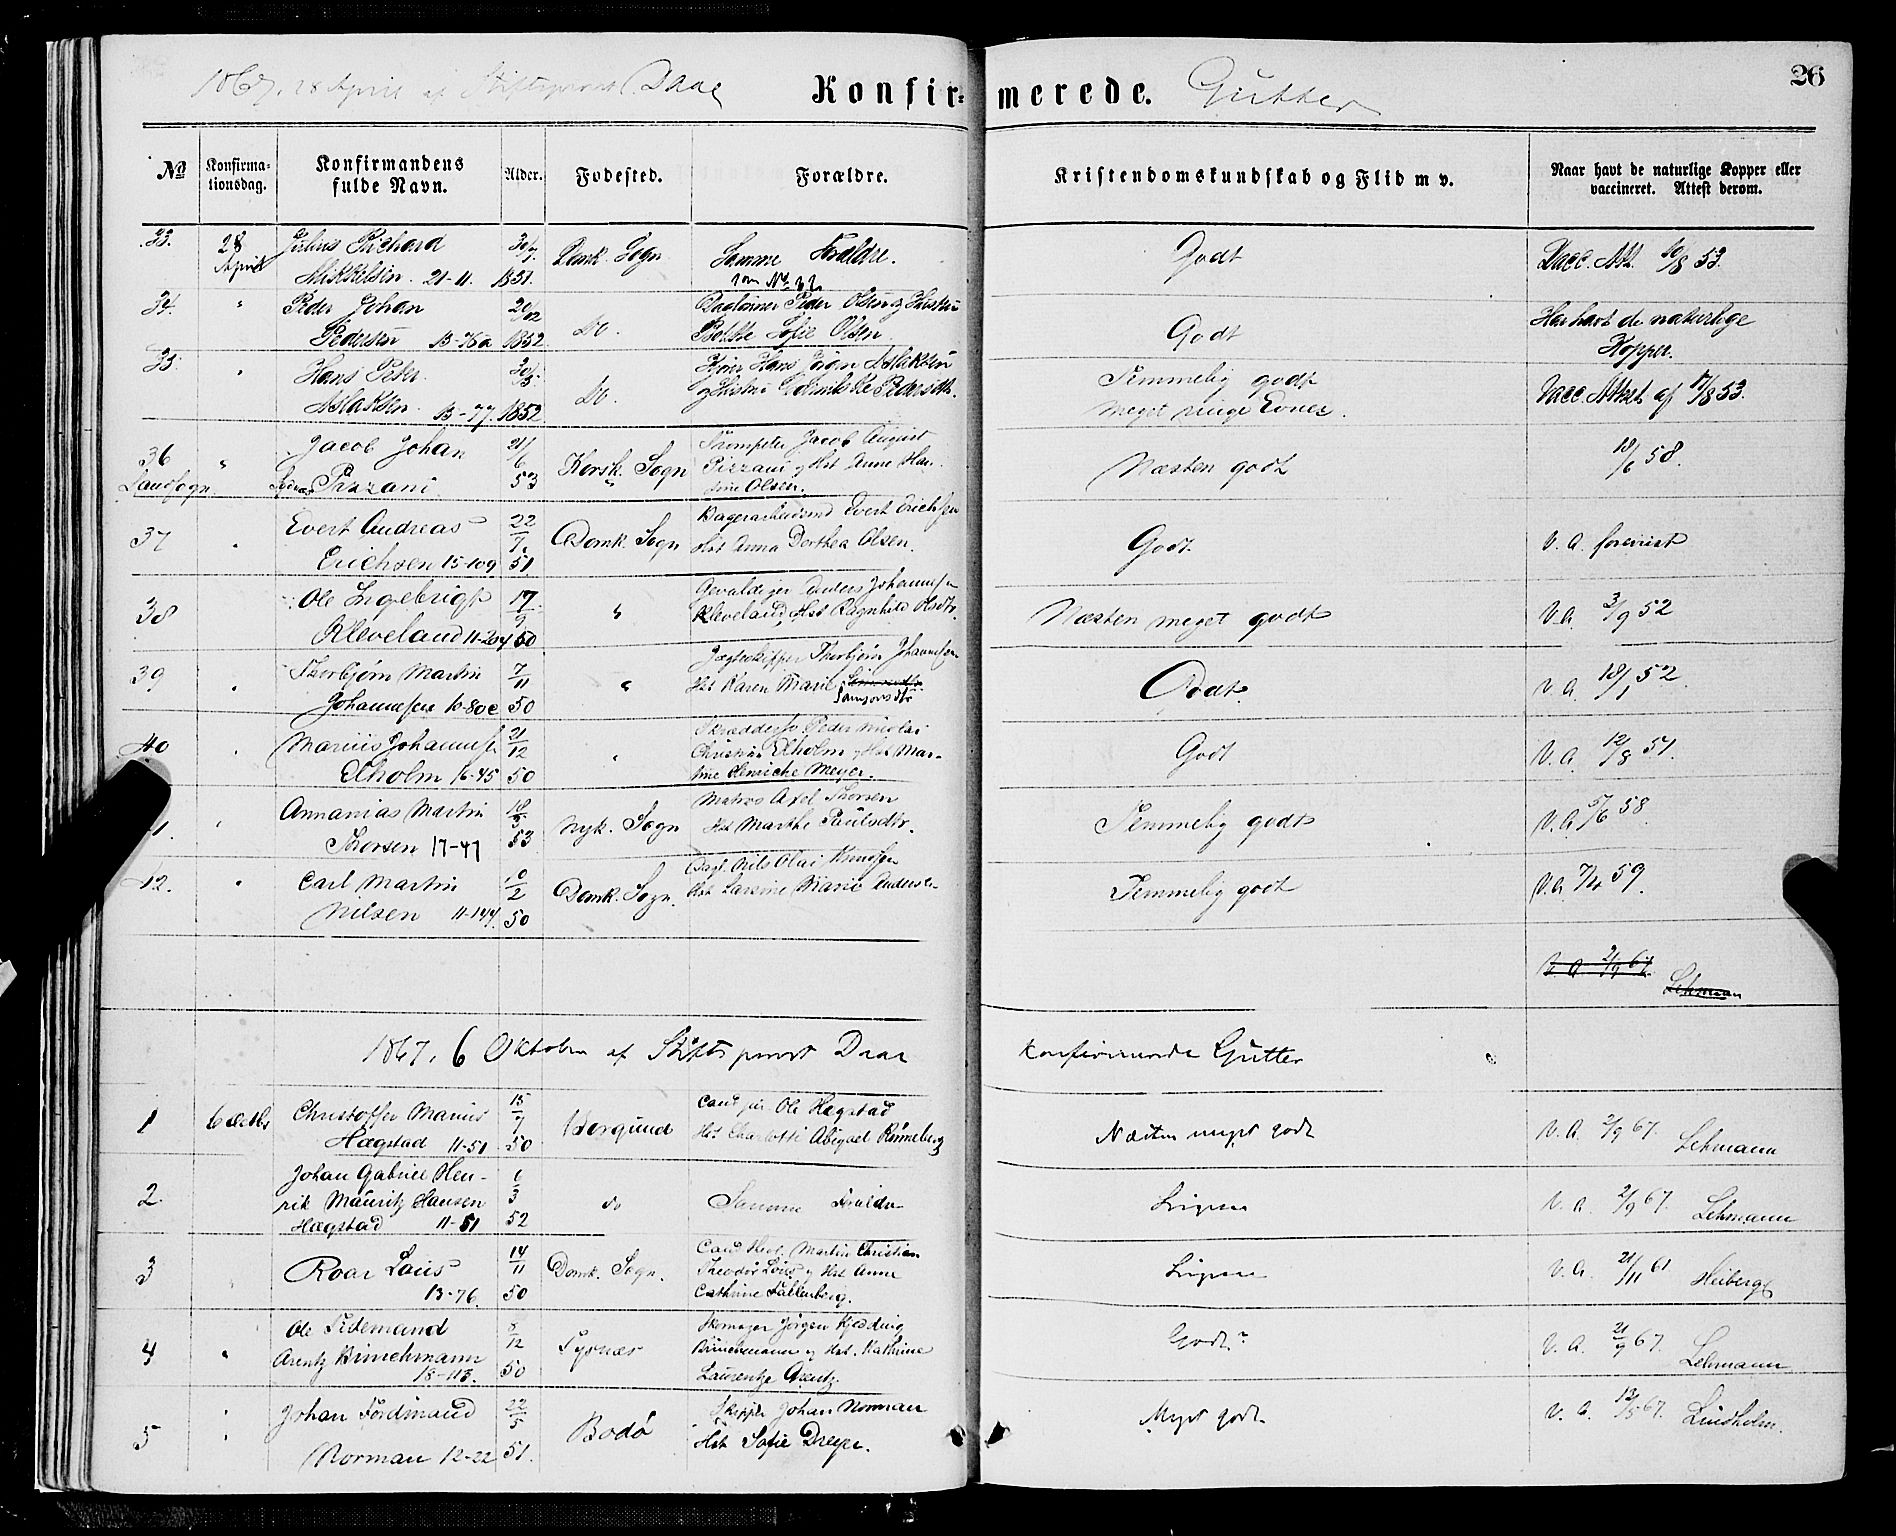 1867. 28 April af Stiftsprovst Daae
Konfir= merede. Gutter
26
No
Konfirma-
tionsdag.
Konfirmandens
fulde Navn.
Alder.
Fødested.
Forældre.
Kristendomskundskab og Flid m v.
Naar havt de naturlige Kopper eller
vaccineret. Attest derom.
33. 28 Julius Richard 30/7 Domk. Sogn Samme Forældre. Godt Vacc. Att. 10/8 53.
April Mikkelsen. 21-11. 1851. som No 32
34. " Peder Johan 20/12 Do. Dagleiner Peder Olsen og Hustru Godt Har havt de naturlige
Pedersen 13-76a 1852 Sofie Olsen Kopper.
35 " Hans Peter 30/5 Do. Hans Jørgen Aslaksen Temmelig godt Vacc. Attest af 17/8 53.
Aslaksen. 13-77 1852 og Hustru Pedersdtr. Meget ringe Evner.
36 " Jacob Johan 21/6 Korsk. Sogn Trompeter Jacob August Næsten godt 18/6 58.
Landsogn Pizzani. 53 Pizzani og Hst Anne Han-
sine Olsen.
37 " Evert Andreas 22/7. Domk. Sogn Bagerarbeidsmd Evert Erichsen Godt. V. A. forevist
Erichsen 15-109 51. Hst Anna Dorthea Olsen.
38 Ole Ingebrigt 17/9 " Gevaldiger Anders Johannesen Næsten meget godt V.A. 3/9 52
Kleveland 11-204 50 Kleveland, Hst Ragnhild Olsdtr.
39 " Thorbjørn Martin 7/11 " Jægteskipper Thorbjørn Johannesen Godt. V. A. 18/1 52.
Johannesen 10-80c 50 Hst Karen Marie
Samsonsdtr
40 " Marius Johannes 21/12 " Skrædder Peder Nicolai Godt V. A. 12/8 51.
Elholm 16-45 50 Christian Elholm og Hst Mar-
tine Henricke Meyer.
1. " Annanias Martin 18/3 Nyk. Sogn Matros Axel Thorsen Temmelig godt V. A. 5/6 58.
Thorsen 17-47 53 Hst Marthe Paulsdtr.
42. " Carl Martin 10/2 Domk. Sogn. Dagl. Nils Olai Knudsen Temmelig godt V.A. 7/4 59.
Nilsen 11-144. 50 Hst Larsine Marie Anderse-
V. A. 2/9 67.
Lehmann
1867. 6 Oktober af Stiftsprovst Daae konfirmerede Gutter
1 6 Octbr Christoffer Marius 15/7 Borgund Cand jur Ole Hægstad Næsten meget godt V. A. 2/9 67
Hægstad 11-51 50 Hst Charlotte Abigael Rønneberg Lehmann
2. Johan Gabriel Hen- 6/3 do Samme Forældre Ligesaa V. A. 2/9 67. Lehmann
rik Mauritz Hansen
Hægstad 11-51 52
3 " Roar Lous 14/11 Domk. Sogn. Cand theol. Martin Christian Ligesaa V. A. 21/11 61 Heiberg
13-76. 50 Theodor Lous og Hst Anne
Cathrine Fallenberg.
4 " Ole Tidemand 8/12 Tysnæs Skomager Jørgen Kjedding Godt? V. A. 21/9 67.
Arentz Binnehmann 50 Binnehmann og Hst. Kathrine Lehmann
18-113. Laurentze Arentz.
5 " Johan Ferdinand 22/5 Bodø Skipper Johan Norman Meget godt. V. A. 13/5 67. Lindholm.
Norman 12-22 51. Hst Sofie Dreyer.